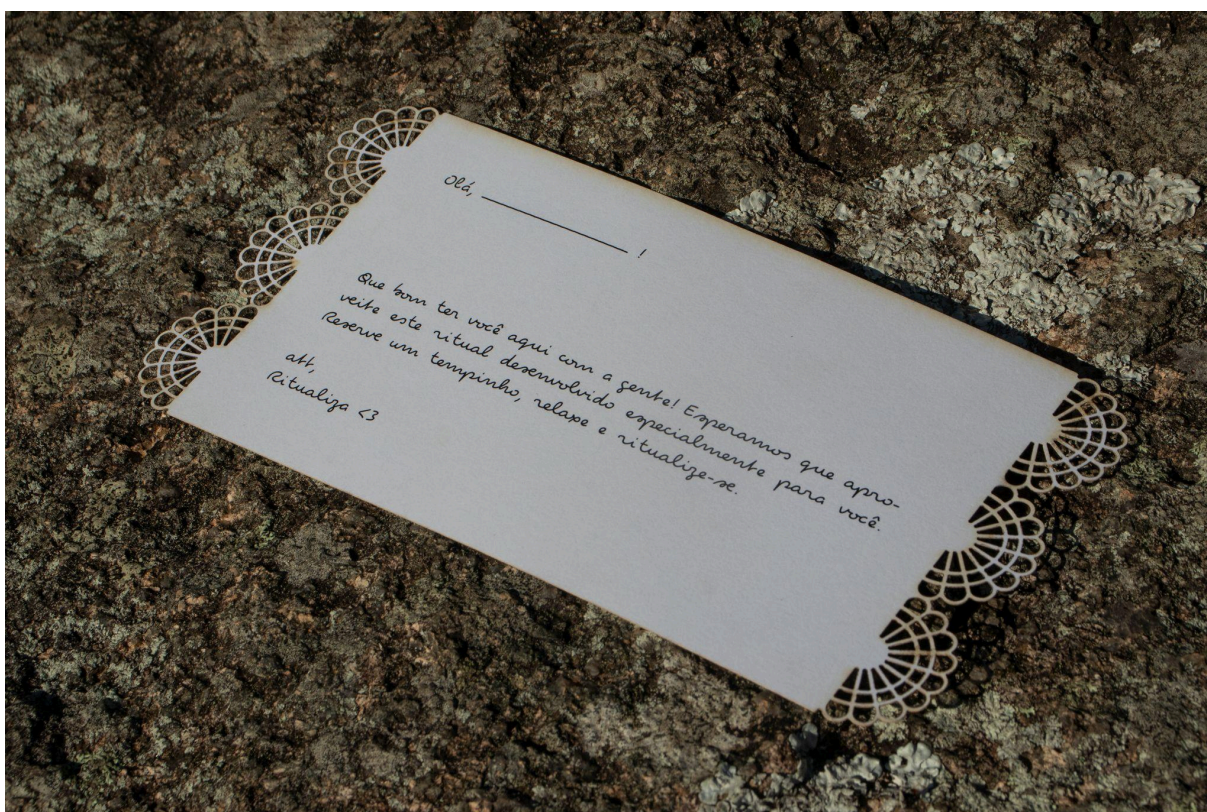 Olá, ____________ !
Que bom ter você aqui com a gente! Esperamos que apro-
veite este ritual desenvolvido especialmente para você.
Reserve um tempinho, relaxe e ritualize-se.
att,
Ritualiza <3